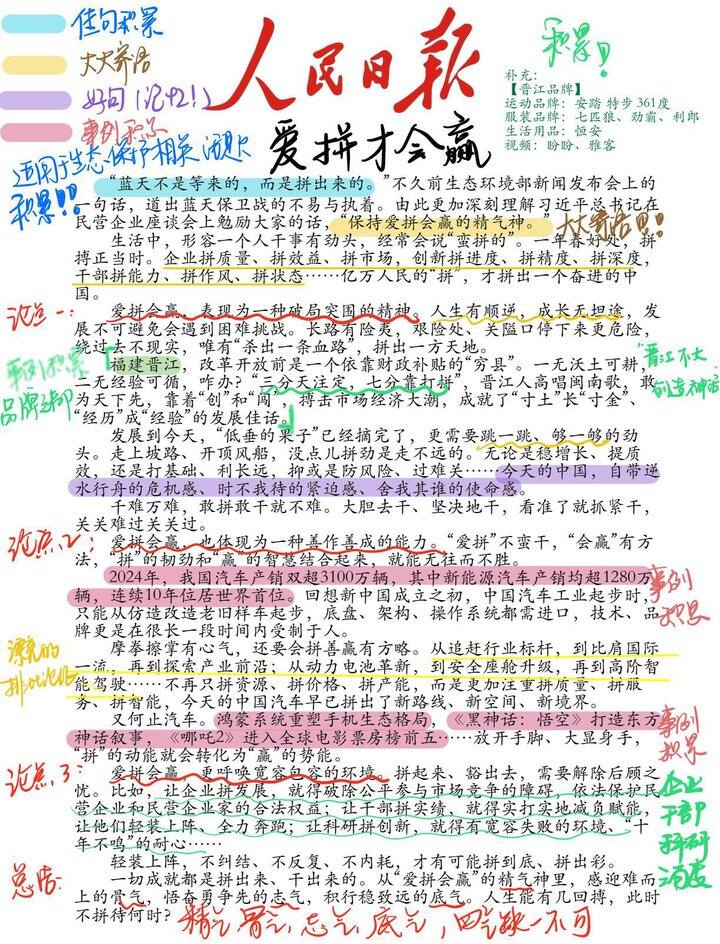 佳句积累
大大寄语
好句（记忆！）
事例积累
人民日报
积累！！
补充：
【晋江品牌】
运动品牌：安踏 特步 361度
服装品牌：七匹狼、劲霸、利郎
生活用品：恒安
视频：盼盼、雅客
爱拼才会赢
适用于生态保护相关话题
积累！！！
“蓝天不是等来的，而是拼出来的。”不久前生态环境部新闻发布会上的
一句话，道出蓝天保卫战的不易与执着。由此更加深刻理解习近平总书记在
民营企业座谈会上勉励大家的话，“保持爱拼会赢的精气神。”
大大寄语!!!
生活中，形容一个人干事有劲头，经常会说“蛮拼的”。一年春好处，拼
搏正当时。企业拼质量、拼效益、拼市场，创新拼进度、拼精度、拼深度，
干部拼能力、拼作风、拼状态……亿万人民的“拼”，才拼出一个奋进的中
国。
论点一：
爱拼会赢，表现为一种破局突围的精神。人生有顺逆，成长无坦途，发
展不可避免会遇到困难挑战。长路有险夷，艰险处、关隘口停下来更危险，
绕过去不现实，唯有“杀出一条血路”，拼出一方天地。
事例积累
品牌之都
福建晋江，改革开放前是一个依靠财政补贴的“穷县”。一无沃土可耕，
二无经验可循，咋办？“三分天注定，七分靠打拼”，晋江人高唱闽南歌，敢
为天下先，靠着“创”和“闯”，搏击市场经济大潮，成就了“寸土”长“寸金”、
“经历”成“经验”的发展佳话。
“晋江不大
创造神话
发展到今天，“低垂的果子”已经摘完了，更需要跳一跳、够一够的劲
头。走上坡路、开顶风船，没点儿拼劲是走不远的。无论是稳增长、提质
效，还是打基础、利长远，抑或是防风险、过难关……今天的中国，自带逆
水行舟的危机感、时不我待的紧迫感、舍我其谁的使命感。
千难万难，敢拼敢干就不难。大胆去干、坚决地干，看准了就抓紧干，
关关难过关关过。
论点2：
爱拼会赢，也体现为一种善作善成的能力。“爱拼”不蛮干，“会赢”有方
法，“拼”的韧劲和“赢”的智慧结合起来，就能无往而不胜。
2024年，我国汽车产销双超3100万辆，其中新能源汽车产销均超1280万
辆，连续10年位居世界首位。回想新中国成立之初，中国汽车工业起步时，
只能从仿造改造老旧样车起步，底盘、架构、操作系统都需进口，技术、品
牌更是在很长一段时间内受制于人。
事例
积累
漂亮的
排比论证
摩拳擦掌有心气，还要会拼善赢有方略。从追赶行业标杆，到比肩国际
一流，再到探索产业前沿；从动力电池革新，到安全座舱升级，再到高阶智
能驾驶……不再只拼资源、拼价格、拼产能，而是更加注重拼质量、拼服
务、拼智能，今天的中国汽车早已拼出了新路线、新空间、新境界。
又何止汽车。鸿蒙系统重塑手机生态格局，《黑神话：悟空》打造东方
神话叙事，《哪吒2》进入全球电影票房榜前五……放开手脚、大显身手，
“拼”的动能就会转化为“赢”的势能。
事例
积累
论点3：
爱拼会赢，更呼唤宽容包容的环境。拼起来、豁出去，需要解除后顾之
忧。比如，让企业拼发展，就得破除公平参与市场竞争的障碍，依法保护民
营企业和民营企业家的合法权益；让干部拼实绩，就得实打实地减负赋能，
让他们轻装上阵、全力奔跑；让科研拼创新，就得有宽容失败的环境、“十
年不鸣”的耐心……
企业
干部
科研
角度
轻装上阵，不纠结、不反复、不内耗，才有可能拼到底、拼出彩。
总结：
一切成就都是拼出来、干出来的。从“爱拼会赢”的精气神里，感迎难而
上的骨气，悟奋勇争先的志气，积行稳致远的底气。人生能有几回搏，此时
不拼待何时？
精气、骨气、志气、底气，四气缺一不可